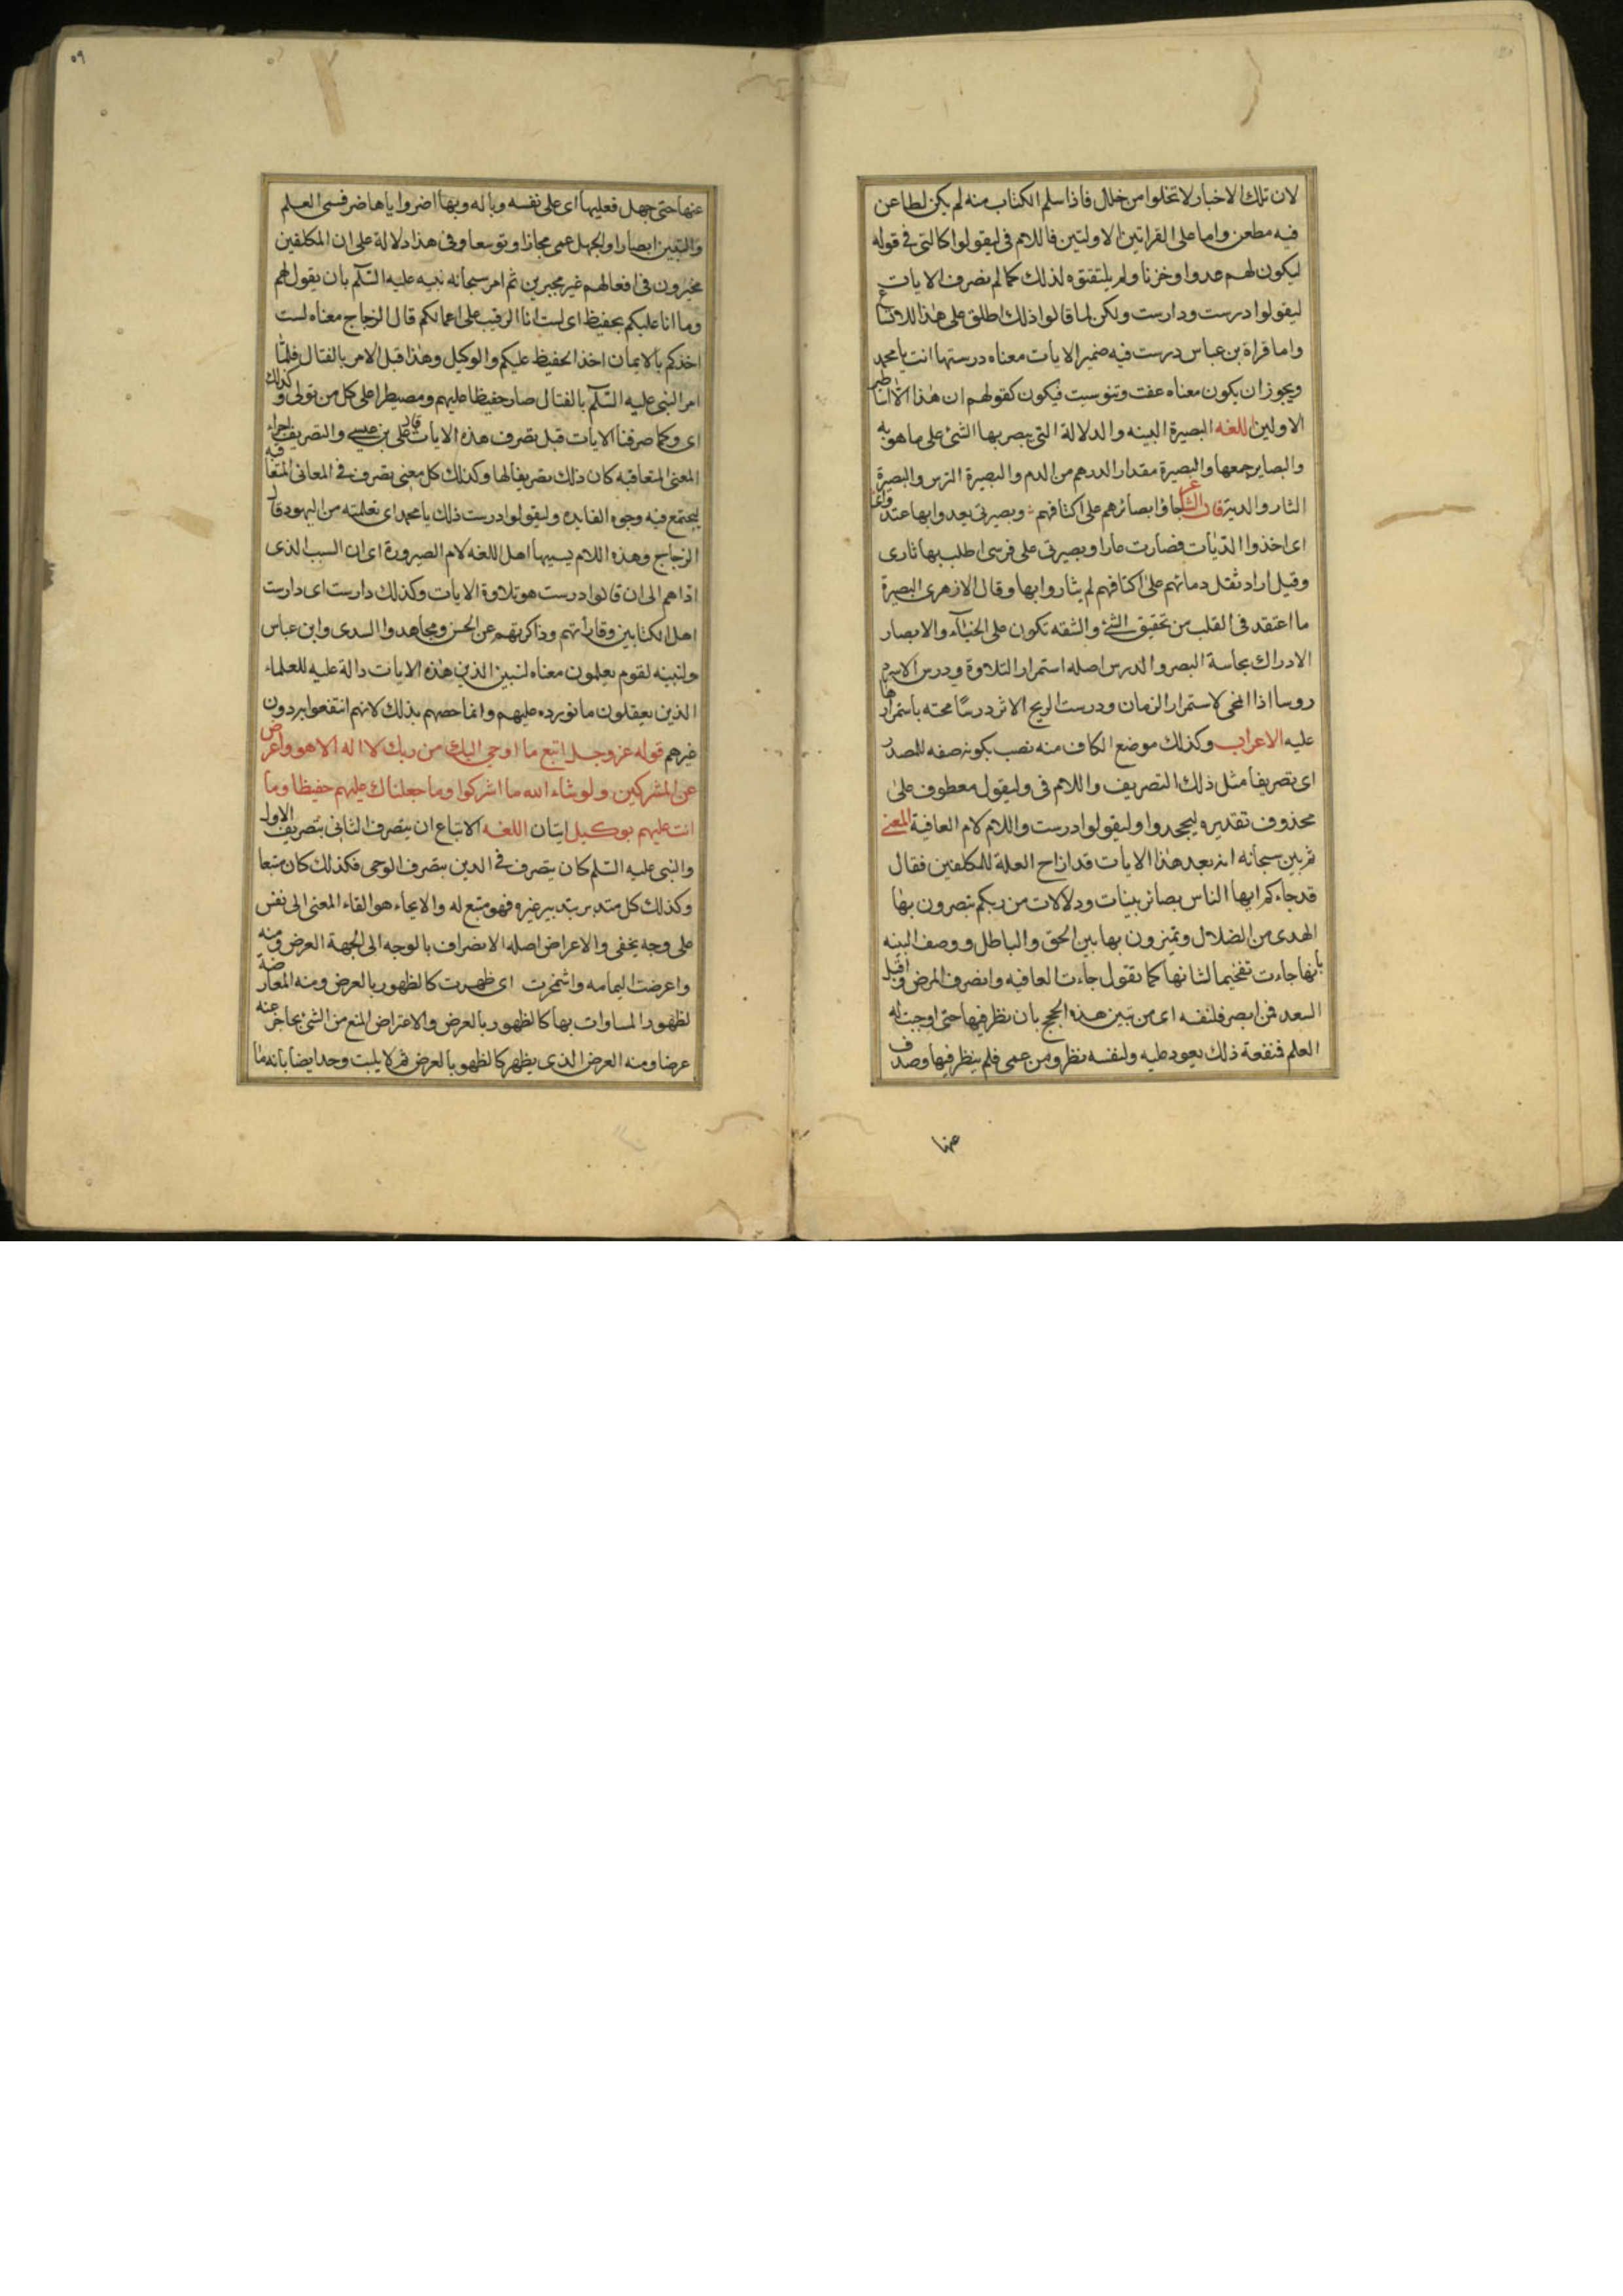 لان تلك الاخبار لا تخلوا من خلل فاذا سلم الكتاب منه لم يكن لطاعن
فيه مطعن واما على القراتين الاولتين فاللام فى ليقولوا كالتى فى قوله
ليكون لهم عدوا وحزنا ولم يلتقتوه لذلك كما لم نصرف الايات
ليقولوا درست ودارست ولكن لما قالوا ذلك اطلق على هذا للاتساع
واما قراة بن عباس درست فيه ضمير الايات معناه درستها انت يا محمد
ويجوز ان يكون معناه عفت وتنوسيت فيكون كقولهم ان هذا الا اساطير
الاولين اللغه البصيرة البينه والدلالة التى يبصر بها الشئ على ما هو به
والبصاير جمعها والبصيرة مقدار الدرهم من الدم والبصيرة الترس والبصيرة
الثار والدية قال الشاعر جاؤا بصائرهم على اكتافهم وبصيرتى يعدوا بها عتد واى
اى اخذوا الديات فصارت عارا وبصيرتى على فرسى اطلب بها ثارى
وقيل اراد ثقل دمائهم على اكتافهم لم يثاروا بها وقال الازهرى البصيرة
ما اعتقد فى القلب من تحقيق الشئ والشقه تكون على الخباء والابصار
الادراك بحاسة البصر والدرس اصله استمرار التلاوة ودرس الاثر
دروسا اذا انمحى لاستمرار الزمان ودرست الريح الاثر درسا محته باستمرارها
عليه الاعراب وكذلك موضع الكاف منه نصب بكونه صفه للمصدر
اى تصريفا مثل ذلك التصريف واللام فى وليقول معطوف على
محذوف تقديره ليجحدوا وليقولوا درست واللام لام العاقبة المعنى
ثم بين سبحانه انه بعد هذا الايات قد ازاح العلة للمكلفين فقال
قد جاءكم ايها الناس بصائر بينات ودلالات من ربكم تبصرون بها
الهدى من الضلال وتميزون بها بين الحق والباطل ووصف البينه
بانها جاءت تفخيما لشانها كما تقول جاءت العافيه وانصرف المرض واقبل
السعد فمن ابصر فلنفسه اى من تبين هذه الحجج بان نظر فيها حتى اوجبت له
العلم فنفعة ذلك يعود عليه ولنفسه نظر ومن عمى فلم ينظر فيها وصدف
عنها
٥٩
عنها حتى جهل فعليها اى على نفسه وباله وبها اضر واياها ضر فسمى العلم
والتبيين ابصارا والجهل عمى مجازا وتوسعا وفى هذا دلالة على ان المكلفين
مخيرون فى افعالهم غير مجبرين ثم امر سبحانه نبيه عليه السلم بان يقول لهم
وما انا عليكم بحفيظ اى لست انا الرقيب على اعمالكم قال الزجاج معناه لست
اخذكم بالايمان اخذ الحفيظ عليكم والوكيل وهذا قبل الامر بالقتال فلما
امر النبى عليه السلم بالقتال صار حفيظا عليهم ومصيطرا على كل من تولى وكذلك
اى وكما صرفنا الايات قبل نصرف هذه الايات قال على بن عيسى والتصريف اجراء
المعنى المتعاقبه كان ذلك تصريفا لها وكذلك كل معنى يصرف فى المعانى المتعاقبه
ليجتمع فيه وجوه الفايده وليقولوا درست ذلك يا محمد اى تعلمته من اليهود قال
الزجاج وهذه اللام يسيها اهل اللغه لام الصيرورة اى ان السبب الذى
اداهم الى ان قالوا درست هو تلاوة الايات وكذلك دارست اى دارست
اهل الكتابين وقاراتهم وذاكرتهم عن الحسن ومجاهد والسدى وابن عباس
ولنبينه لقوم يعلمون معناه لنبين الذين هذه الايات دالة عليه للعلماء
الذين يعقلون ما نورده عليهم وانما خصهم بذلك لانهم انتفعوا به دون
غيرهم قوله عز وجل اتبع ما اوحى اليك من ربك لا اله الا هو واعرض
عن المشركين ولو شاء الله ما اشركوا وما جعلناك عليهم حفيظا وما
انت عليهم بوكيل ايتان اللغه الاتباع ان يتصرف الثانى بتصريف الاول
والنبى عليه السلم كان يتصرف فى الدين بتصرف الوحى فكذلك كان متبعا
وكذلك كل متدبر بتدبير غيره فهو متبع له والايحاء هو القاء المعنى الى نفس
على وجه يخفى والاعراض اصله الانصراف بالوجه الى الجهة العرض ومنه
واعرضت اليمامه واشمخرت اى ظهرت كالظهور بالعرض ومنه المعارضة
لظهور المساوات بها كالظهور بالعرض والاعتراض المنع من الشئ بحاجز عنه
عرضا ومنه العرض الذى يظهر كالظهور بالعرض ثم لا يلبث وحد ايضا بانه ما